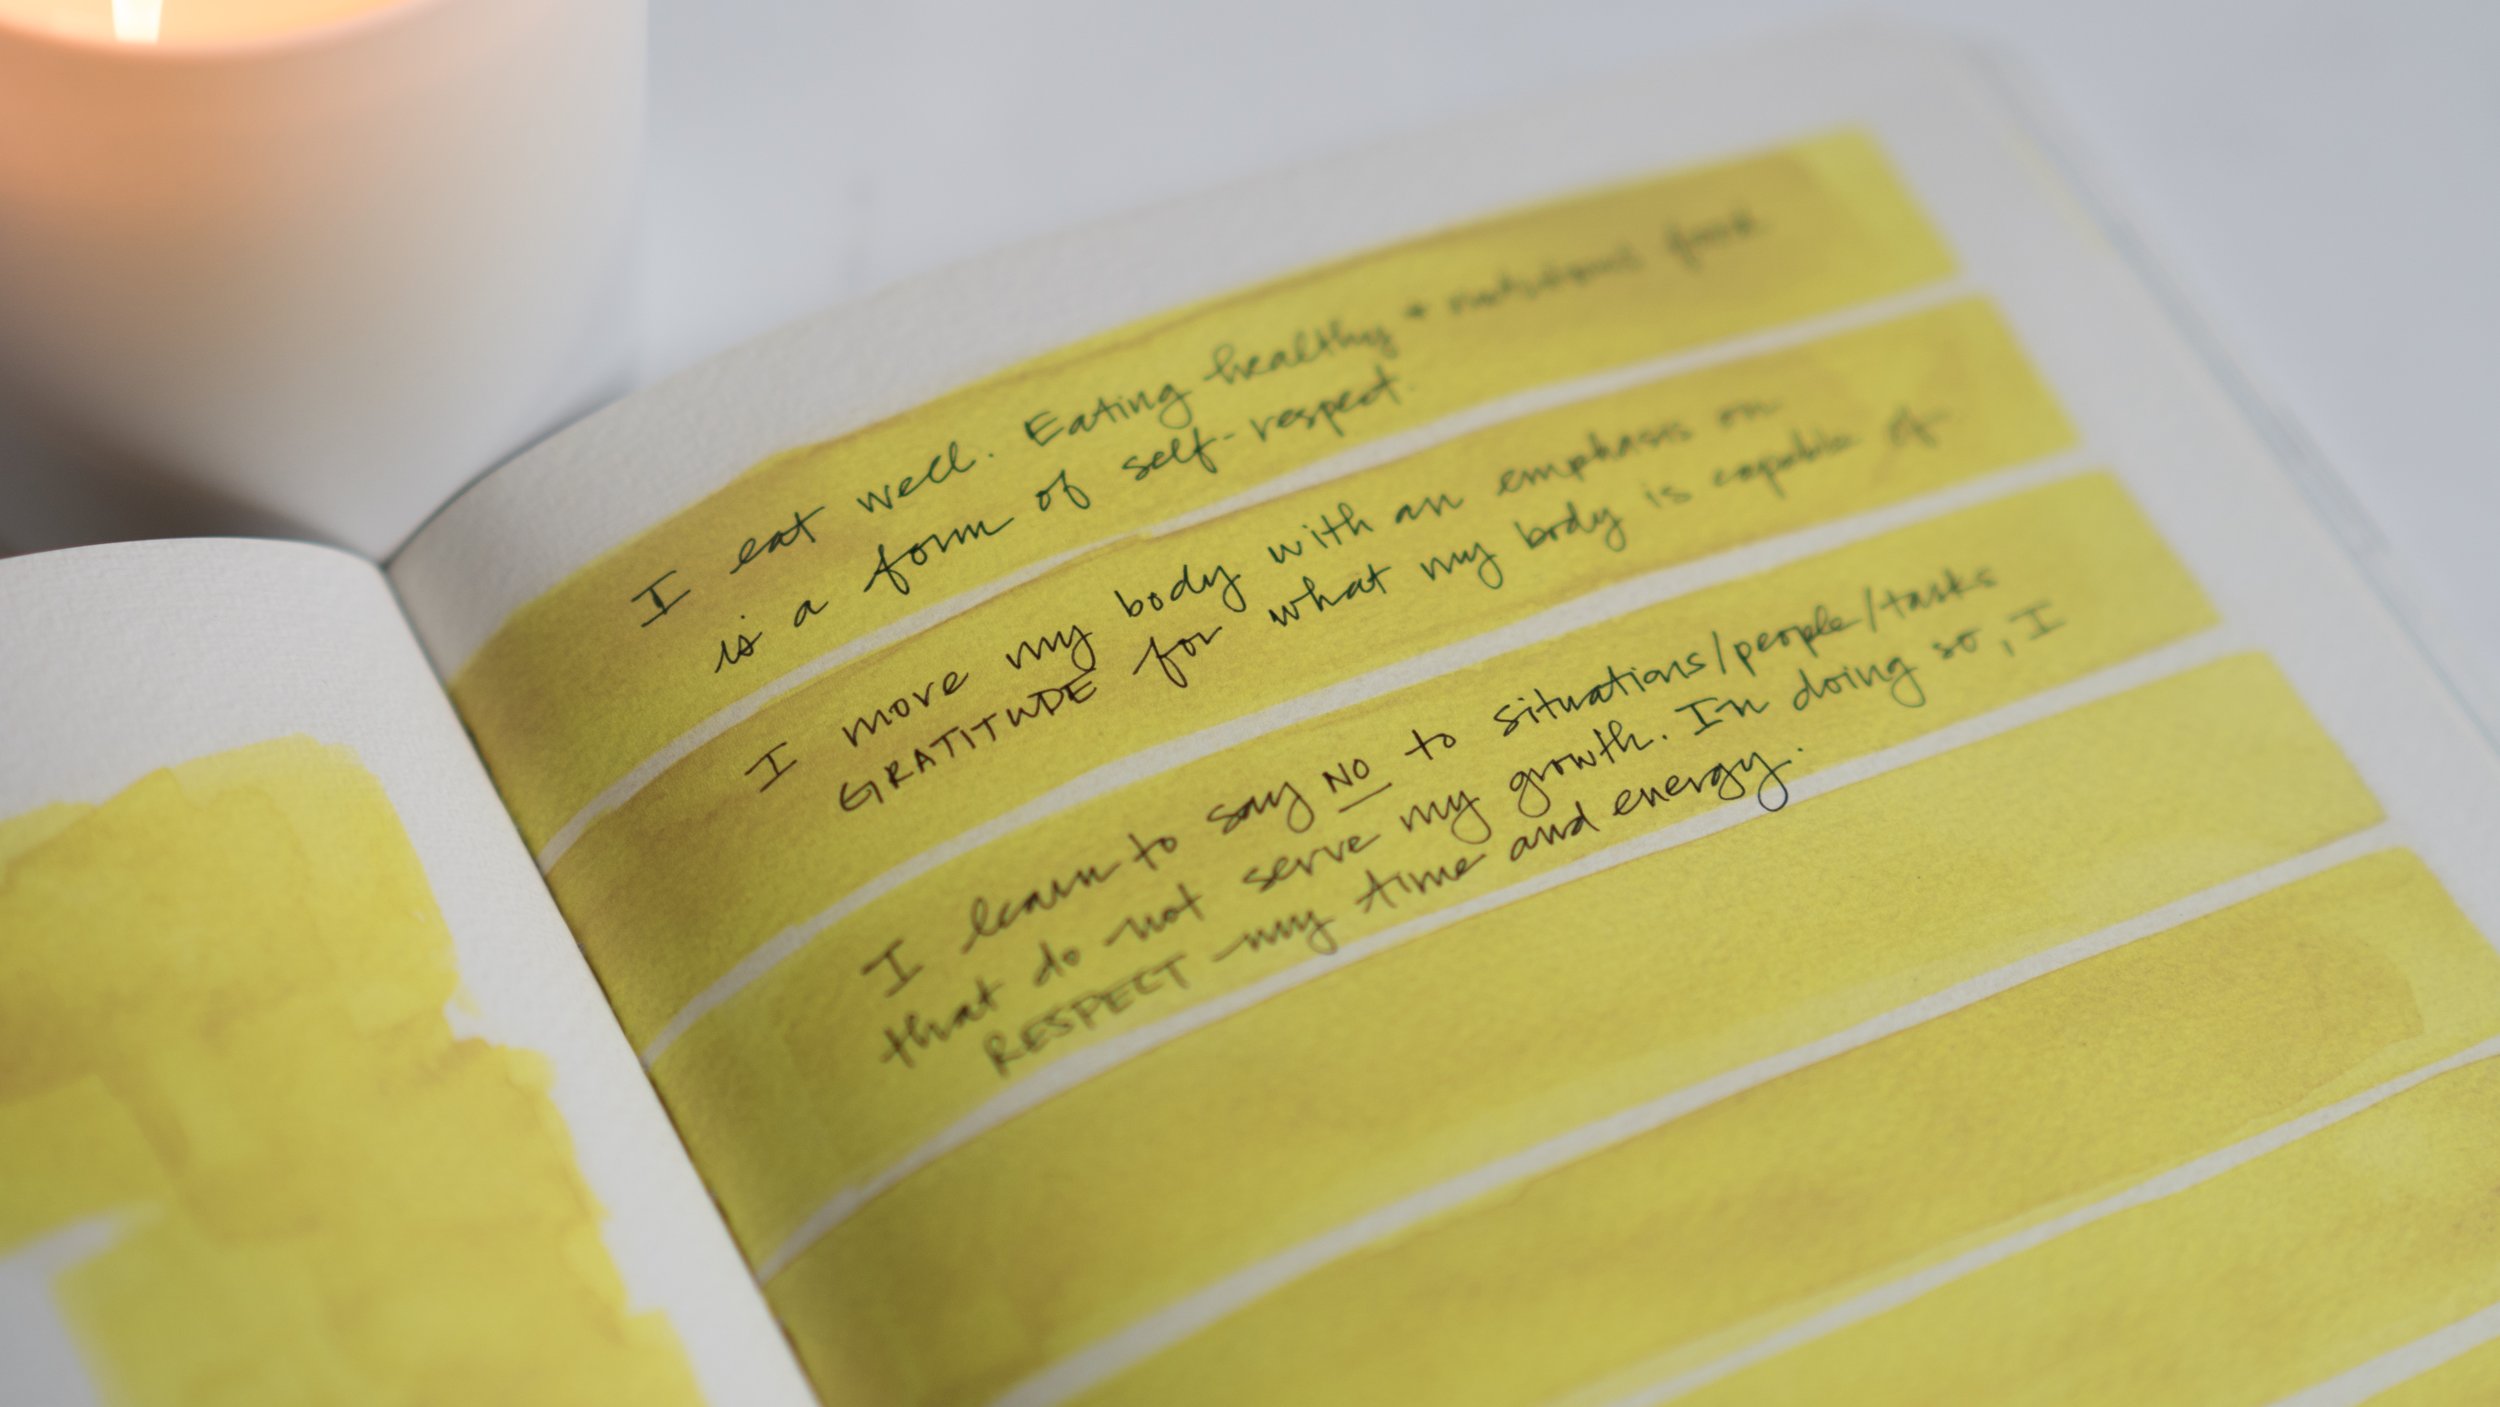 I eat well. Eating healthy + nutritious food
is a form of self-respect.
I move my body with an emphasis on
GRATITUDE for what my body is capable of.
I learn to say NO to situations/people/tasks
that do not serve my growth. In doing so, I
RESPECT my time and energy.